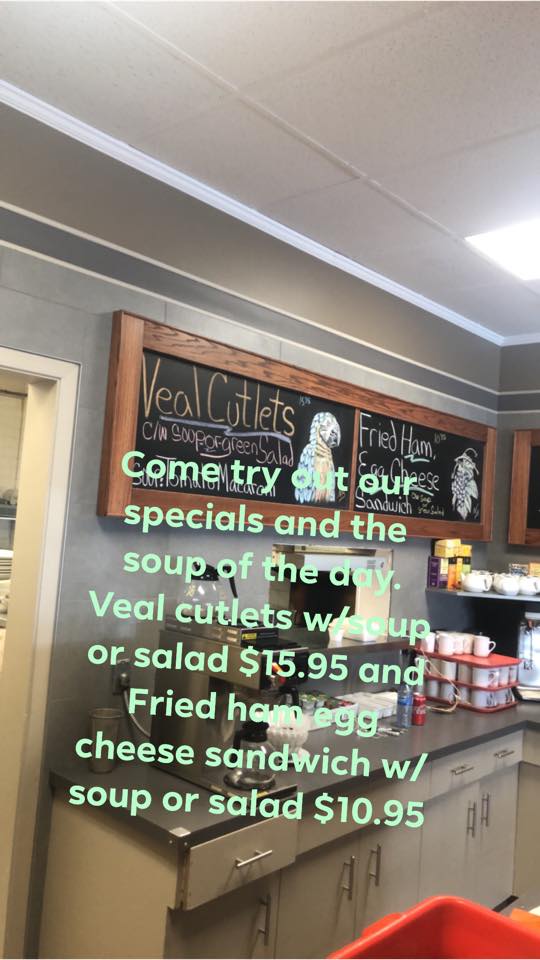 Veal Cutlets
c/w soup or green Salad
Soup: Tomato Macaroni
Fried Ham,
Egg Cheese
Sandwich
Come try out our
specials and the
soup of the day.
Veal cutlets w/soup
or salad $15.95 and
Fried ham egg
cheese sandwich w/
soup or salad $10.95